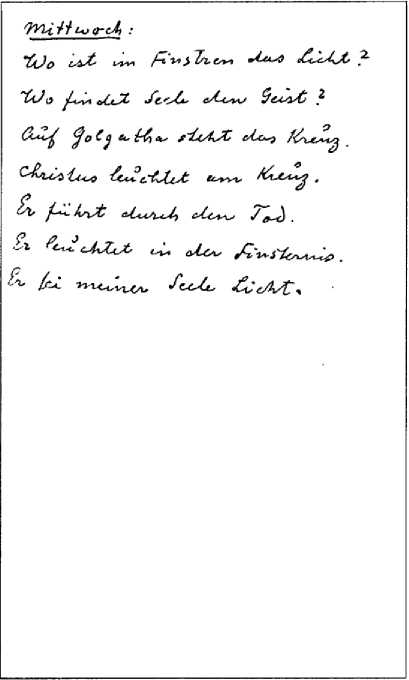 Mittwoch:
Wo ist im Finstren das Licht?
Wo findet Seele den Geist?
Auf Golgatha steht das Kreuz.
Christus leuchtet am Kreuz.
Er führt durch den Tod.
Er leuchtet in der Finsternis.
Er sei meiner Seele Licht.